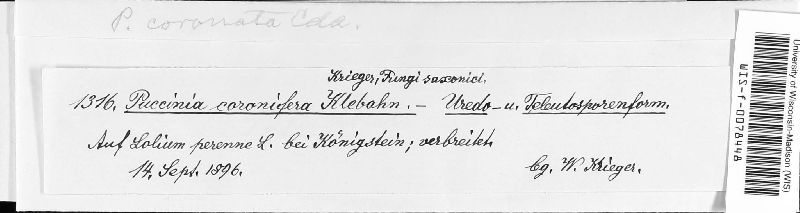 P. coronata Cda.
Krieger, Fungi saxonici.
1316. Puccinia coronifera Klebahn. – Uredo- u. Teleutosporenform.
Auf Lolium perenne L. bei Königstein; verbreitet.
14. Sept. 1896. lg. W. Krieger.
University of Wisconsin-Madison (WIS)
WIS-F-0078448